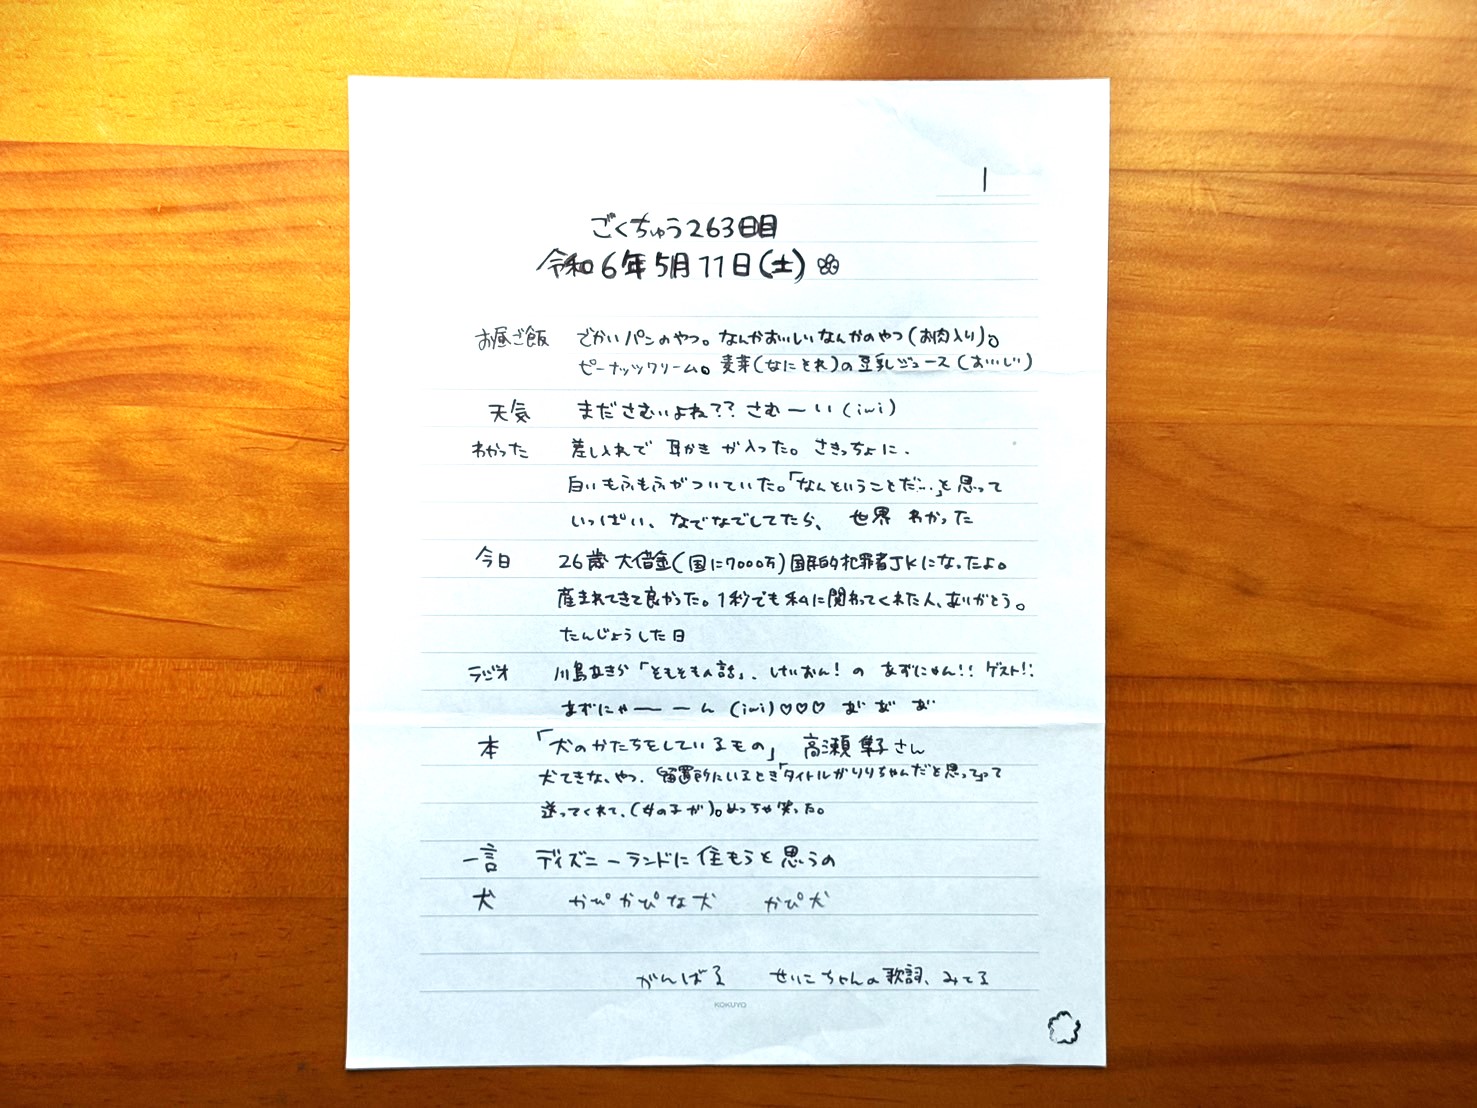 1
ごくちゅう263日目
令和6年5月11日(土)
お昼ご飯 でかいパンのやつ。なんかおいしいなんかのやつ(お肉入り)。
ピーナッツクリーム。麦芽(なにそれ)の豆乳ジュース(おいしい)
天気 まださむいよね?? さむーい(;ω;)
わかった 差し入れで 耳かき が入った。さきっちょに、
白いもふもふがついていた。「なんということだ…」と思って
いっぱい、なでなでしてたら、世界 わかった
今日 26歳 大借金(国に7000万)国民的犯罪者JKになったよ。
産まれてきて良かった。1秒でも私に関わってくれた人、ありがとう。
たんじょうした日
ラジオ 川島あきら「そもそもの話」、けいおん!の あずにゃん!!ゲスト!!
あずにゃーーん (;ω;)♡♡♡ あ゛ あ゛ あ゛
本 「犬のかたちをしているもの」 高瀬隼子さん
犬できな、やつ、留置所にいるとき「タイトルがりりちゃんだと思って」って
送ってくれて、(女の子が)。めっちゃ笑った。
一言 ディズニーランドに住もうと思うの
犬 かぴかぴな犬 かぴ犬
がんばる せいこちゃんの歌詞、みてる
KOKUYO